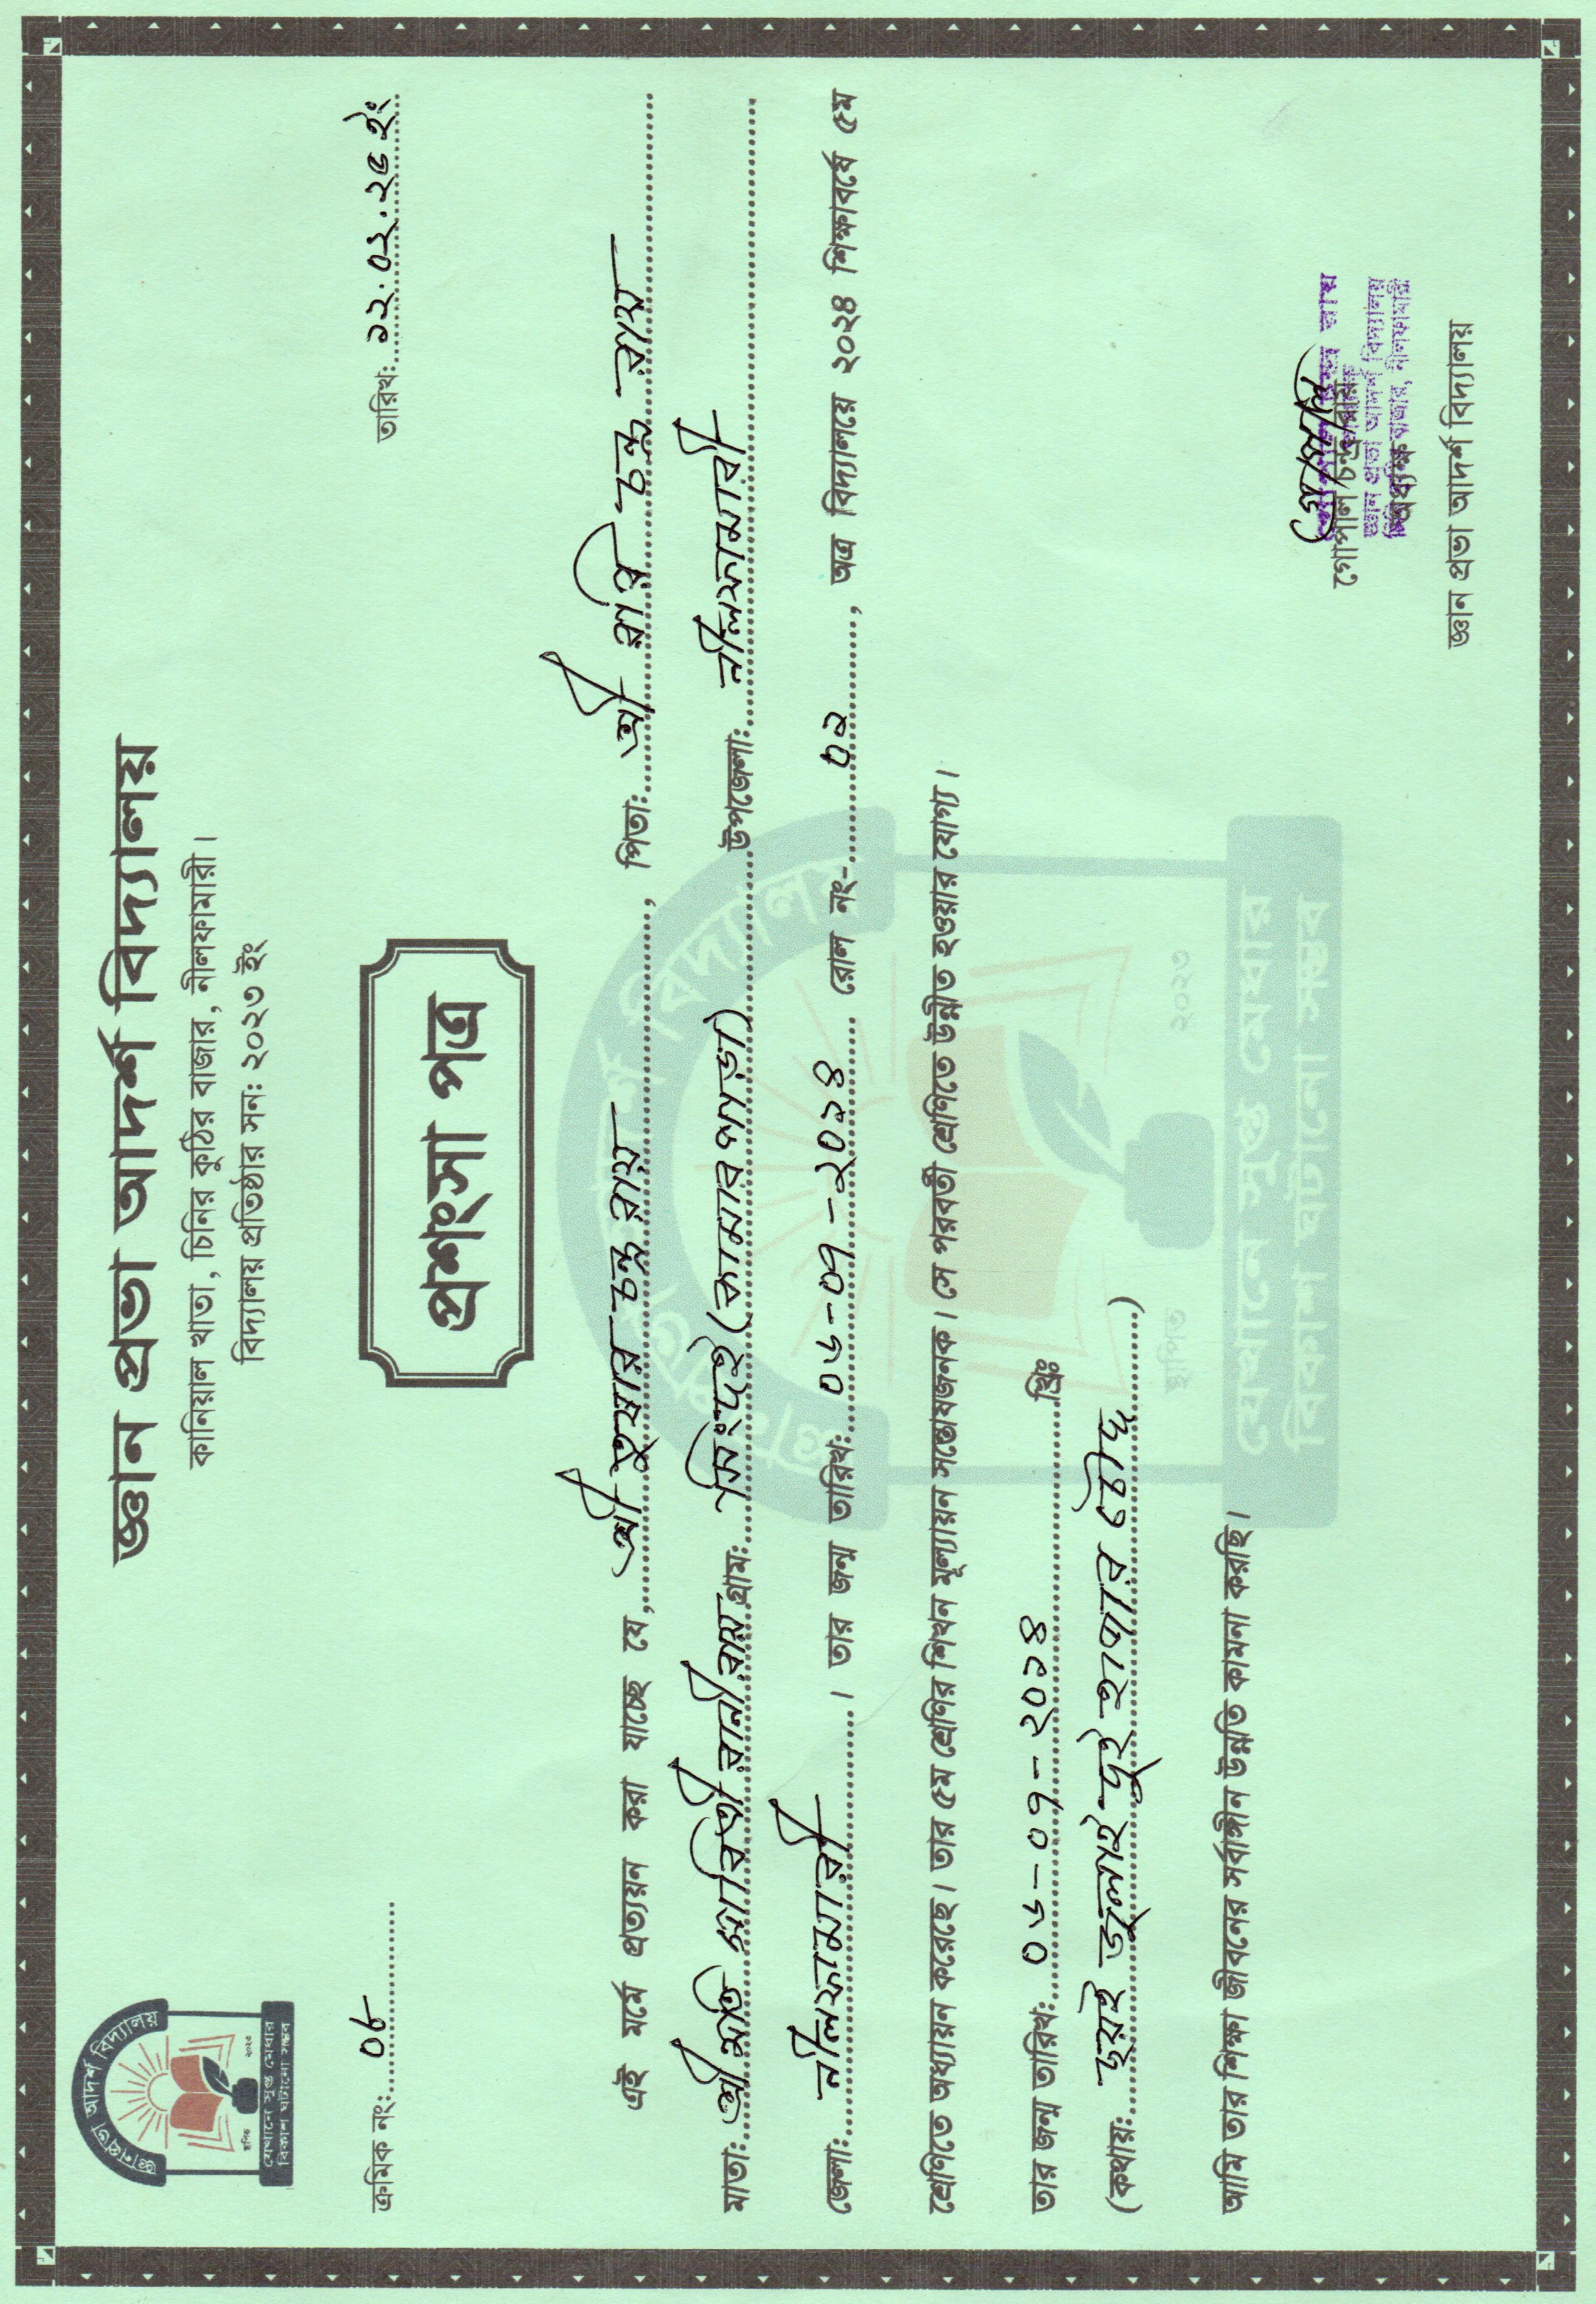 জ্ঞানপ্রভা আদর্শ বিদ্যালয়
স্থাপিত ২০২৩
যেখানে সুপ্ত মেধার
বিকাশ ঘটানো সম্ভব
জ্ঞান প্রভা আদর্শ বিদ্যালয়
কানিয়াল খাতা, চিনির কুঠির বাজার, নীলফামারী।
বিদ্যালয় প্রতিষ্ঠার সন: ২০২৩ ইং
ক্রমিক নং: ০৮
তারিখ: ১২.০২.২৫ ইং
প্রশংসা পত্র
এই মর্মে প্রত্যয়ন করা যাচ্ছে যে, শ্রী তুষার চন্দ্র রায়, পিতা: শ্রী রবি চন্দ্র রায়
মাতা: শ্রী মতি সাবিত্রী রানী রায় গ্রাম: সিংদই (কামারপাড়া) উপজেলা: নীলফামারী
জেলা: নীলফামারী। তার জন্ম তারিখ: ০৬-০৭-২০১৪ রোল নং- ০২, অত্র বিদ্যালয়ে ২০২৪ শিক্ষাবর্ষে ৫ম
শ্রেণিতে অধ্যায়ন করেছে। তার ৫ম শ্রেণির শিখন মূল্যায়ন সন্তোষজনক। সে পরবর্তী শ্রেণিতে উন্নীত হওয়ার যোগ্য।
তার জন্ম তারিখ: ০৬-০৭-২০১৪ খ্রিঃ
(কথায়: ছয়ই জুলাই দুই হাজার চৌদ্দ)
স্থাপিত ২০২৩
আমি তার শিক্ষা জীবনের সর্বাঙ্গীন উন্নতি কামনা করছি।
যেখানে সুপ্ত মেধার
বিকাশ ঘটানো সম্ভব
গোপাল
গোপাল চন্দ্র রায়
চন্দ্র রায়
জ্ঞান প্রভা আদর্শ বিদ্যালয়
অধ্যক্ষ
বাজার, নীলফামারী
জ্ঞান প্রভা আদর্শ বিদ্যালয়